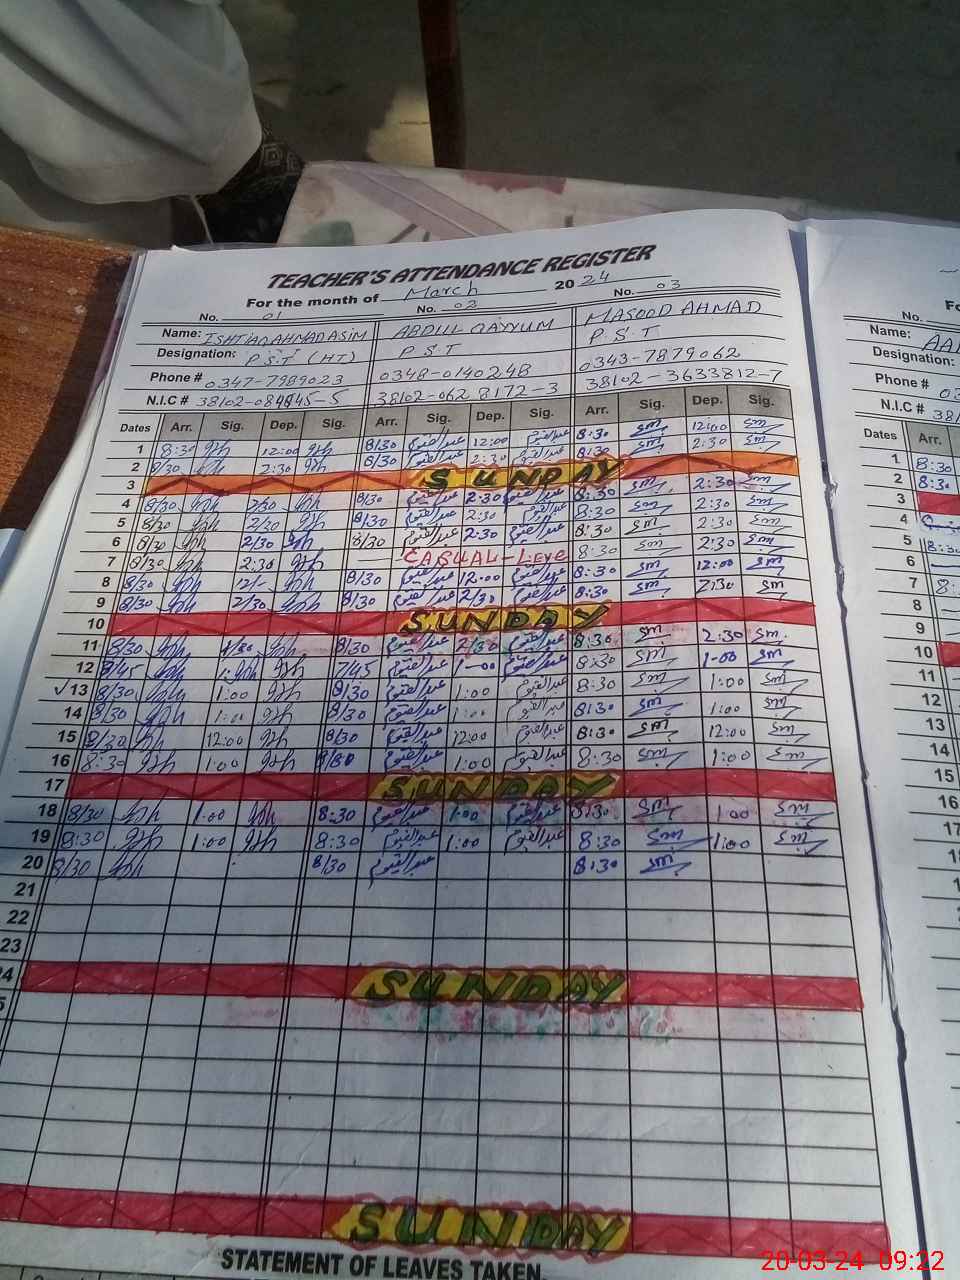 TEACHER'S ATTENDANCE REGISTER
For the month of March 2024
No. 01 No. 02 No. 03
Name: ISHTIAQ AHMAD ASIM ABDUL QAYYUM MASOOD AHMAD
Designation: P.S.T (HT) P S T P.S.T
Phone # 0347-7989023 0348-0140248 0343-7879062
N.I.C # 38102-062 8172-3 38102-3633812-7
Dates Arr. Sig. Dep. Sig. Arr. Sig. Dep. Sig. Arr. Sig. Dep. Sig.
1 8:30 12:00 8/30 عبدالقیوم 12:00 عبدالقیوم 8:30 sm 12:00 sm
2 8/30 2:30 8/30 عبدالقیوم 2:30 عبدالقیوم 8:30 sm 2:30 sm
3 SUNDAY
4 8/30 2/30 8/30 عبدالقیوم 2:30 عبدالقیوم 8:30 sm 2:30 sm
5 8/30 2/30 8/30 عبدالقیوم 2:30 عبدالقیوم 8:30 sm 2:30 sm
6 8/30 2/30 8/30 عبدالقیوم 2:30 عبدالقیوم 8:30 sm 2:30 sm
7 8/30 2:30 CASUAL-Lieve 8:30 sm 2:30 sm
8 8/30 12/- 8/30 عبدالقیوم 12:00 عبدالقیوم 8:30 sm 12:00 sm
9 8/30 2/30 8/30 عبدالقیوم 2/30 عبدالقیوم 8:30 sm 2:30 sm
10 SUNDAY
11 8/30 8/30 عبدالقیوم 2/30 عبدالقیوم 8:30 sm 2:30 sm
12 7/45 عبدالقیوم 1-00 عبدالقیوم 8:30 sm 1-00 sm
✓13 8/30 1:00 8/30 عبدالقیوم 1:00 عبدالقیوم 8:30 sm 1:00 sm
14 8/30 1:00 8/30 عبدالقیوم 1:00 عبدالقیوم 8:30 sm 1:00 sm
15 8/30 12:00 8/30 عبدالقیوم 12:00 عبدالقیوم 8:30 sm 12:00 sm
16 8:30 1:00 8/30 عبدالقیوم 1:00 عبدالقیوم 8:30 sm 1:00 sm
17 SUNDAY
18 8/30 1:00 8:30 عبدالقیوم 1:00 عبدالقیوم 8:30 sm 1:00 sm
19 8:30 1:00 8:30 عبدالقیوم 1:00 عبدالقیوم 8:30 sm 1:00 sm
20 8/30 8/30 عبدالقیوم 8:30 sm
21
22
23
24 SUNDAY
SUNDAY
STATEMENT OF LEAVES TAKEN
No.
Name:
Designation:
Phone #
N.I.C #
Dates Arr.
1 8:30
2 8:30
3
4
5 8:30
6
7
8
9
10
11
12
13
14
15
16
17
20-03-24 09:22